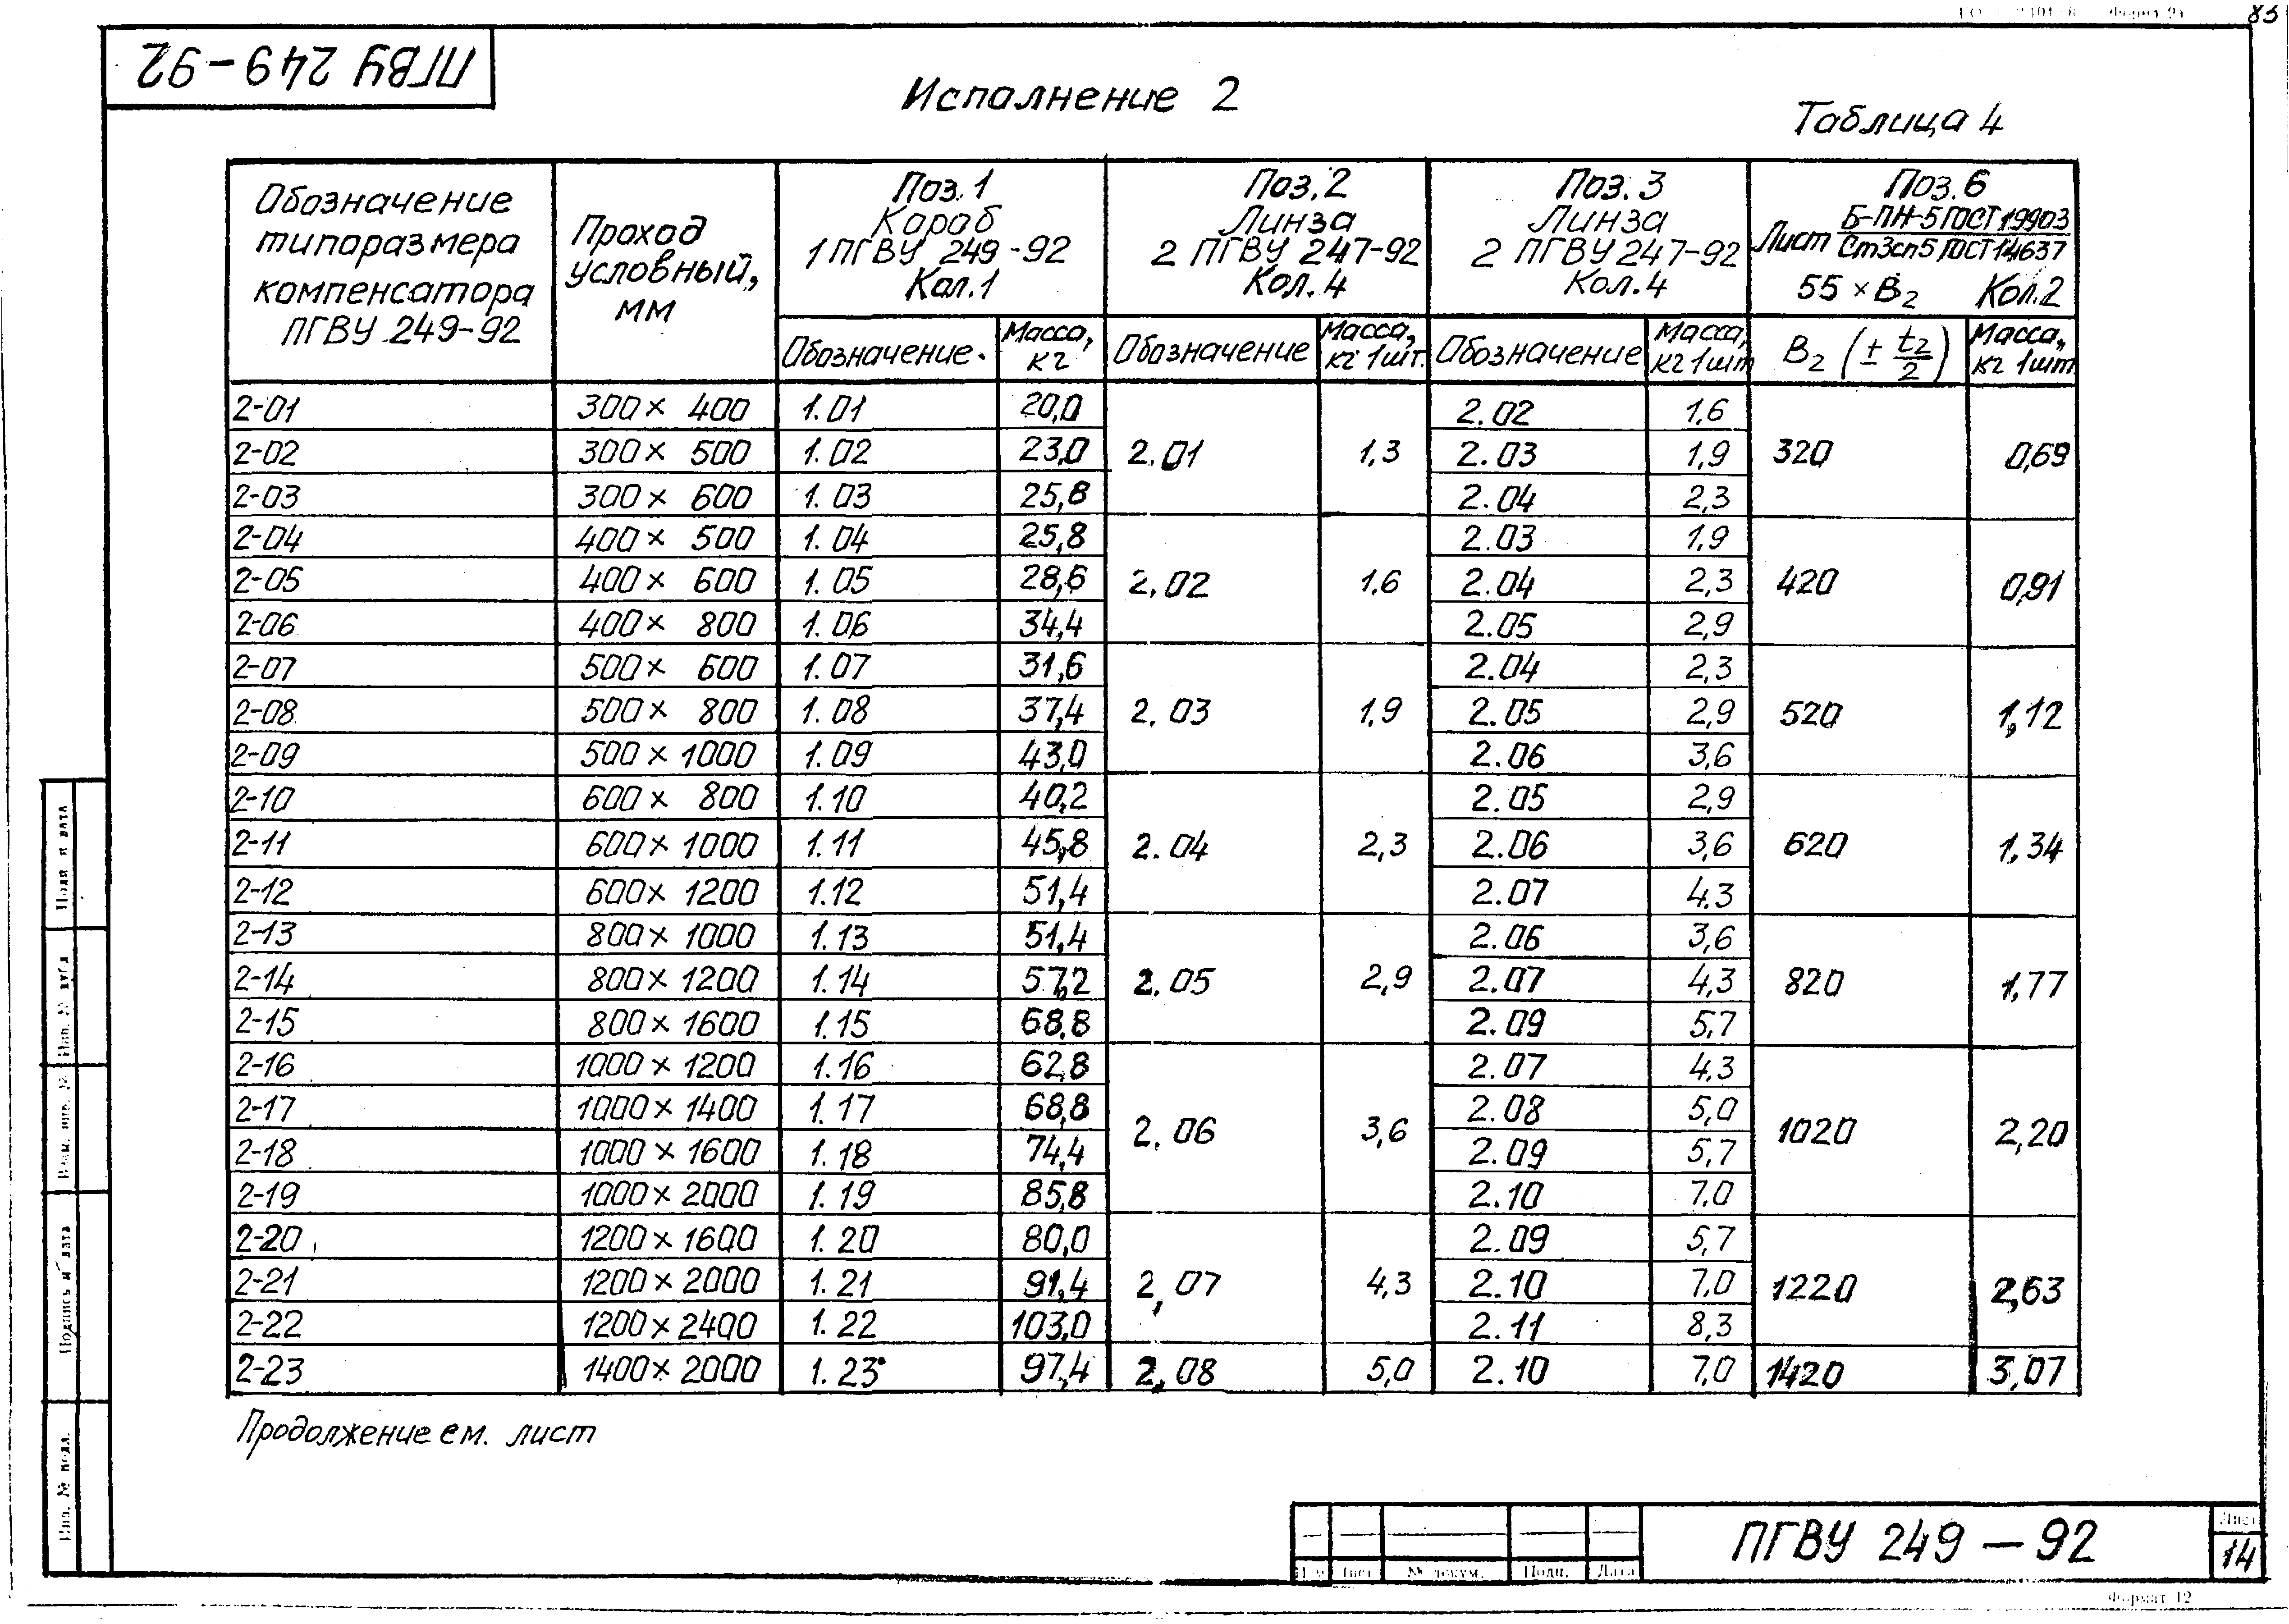 83
ПГВУ 249-92
Исполнение 2
Таблица 4
Обозначение типоразмера компенсатора ПГВУ 249-92
Проход условный, мм
Поз.1 Короб 1 ПГВУ 249-92 Кол.1
Поз.2 Линза 2 ПГВУ 247-92 Кол.4
Поз.3 Линза 2 ПГВУ 247-92 Кол.4
Поз.6 Лист Б-ПН-5 ГОСТ 19903 / Ст3сп5 ГОСТ 14637 55 × B2 Кол.2
Обозначение Масса, кг Обозначение Масса, кг 1шт. Обозначение Масса, кг 1шт B2 (± t2/2) Масса, кг 1шт
2-01 300 × 400 1.01 20,0 2.02 1,6
2-02 300 × 500 1.02 23,0 2.01 1,3 2.03 1,9 320 0,69
2-03 300 × 600 1.03 25,8 2.04 2,3
2-04 400 × 500 1.04 25,8 2.03 1,9
2-05 400 × 600 1.05 28,6 2.02 1,6 2.04 2,3 420 0,91
2-06 400 × 800 1.06 34,4 2.05 2,9
2-07 500 × 600 1.07 31,6 2.04 2,3
2-08 500 × 800 1.08 37,4 2.03 1,9 2.05 2,9 520 1,12
2-09 500 × 1000 1.09 43,0 2.06 3,6
2-10 600 × 800 1.10 40,2 2.05 2,9
2-11 600 × 1000 1.11 45,8 2.04 2,3 2.06 3,6 620 1,34
2-12 600 × 1200 1.12 51,4 2.07 4,3
2-13 800 × 1000 1.13 51,4 2.06 3,6
2-14 800 × 1200 1.14 57,2 2.05 2,9 2.07 4,3 820 1,77
2-15 800 × 1600 1.15 68,8 2.09 5,7
2-16 1000 × 1200 1.16 62,8 2.07 4,3
2-17 1000 × 1400 1.17 68,8 2.06 3,6 2.08 5,0 1020 2,20
2-18 1000 × 1600 1.18 74,4 2.09 5,7
2-19 1000 × 2000 1.19 85,8 2.10 7,0
2-20 1200 × 1600 1.20 80,0 2.09 5,7
2-21 1200 × 2000 1.21 91,4 2,07 4,3 2.10 7,0 1220 2,63
2-22 1200 × 2400 1.22 103,0 2.11 8,3
2-23 1400 × 2000 1.23 97,4 2,08 5,0 2.10 7,0 1420 3,07
Продолжение см. лист
Подп и дата
Инв. № дубл
Взам. инв. №
Подпись и дата
Инв. № подл.
Лист № докум. Подп. Дата
ПГВУ 249 - 92
Лист
14
Формат 12